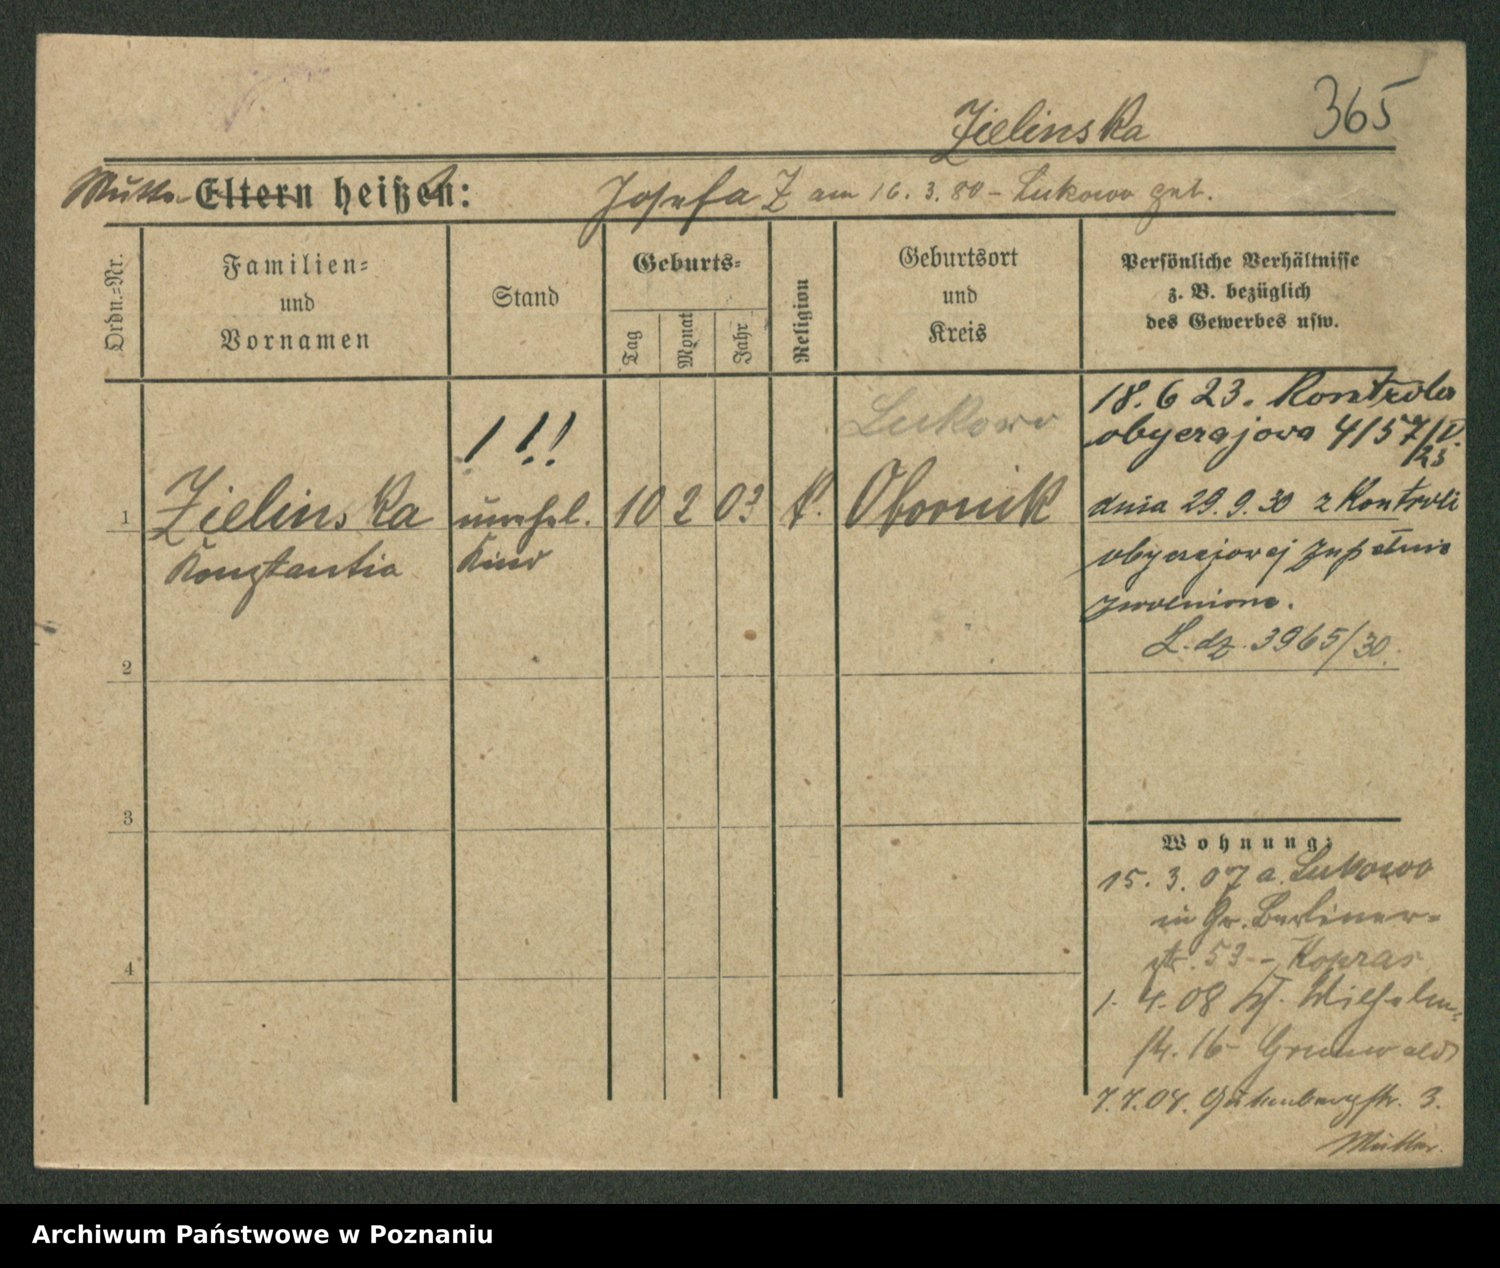 Zielinska
365
Mutter Eltern heißen: Josefa Z am 16.3.80 - Lukowo geb.
Ordn.-Nr.
Familien-
und
Vornamen
Stand
Geburts-
Tag
Monat
Jahr
Religion
Geburtsort
und
Kreis
Persönliche Verhältnisse
z. B. bezüglich
des Gewerbes usw.
! !!
Lukowo
1 Zielinska
Konstantia
unehel.
Kind
10 2 03 k. Obornik
18.6 23. Kontrola
obyczajowa 4157/V.
23
dnia 29.9.30 z Kontroli
obyczajowej zupełnie
zwolniona.
L.dz. 3965/30.
2
3
4
Wohnung:
15. 3. 07 a. Lukowo
in Gr. Berliner-
str. 53 - Kopras
1. 4. 08 Wilhelm-
str. 16 - Grunwald
7.7.08. Gutenbergstr. 3.
Mutter.
Archiwum Państwowe w Poznaniu